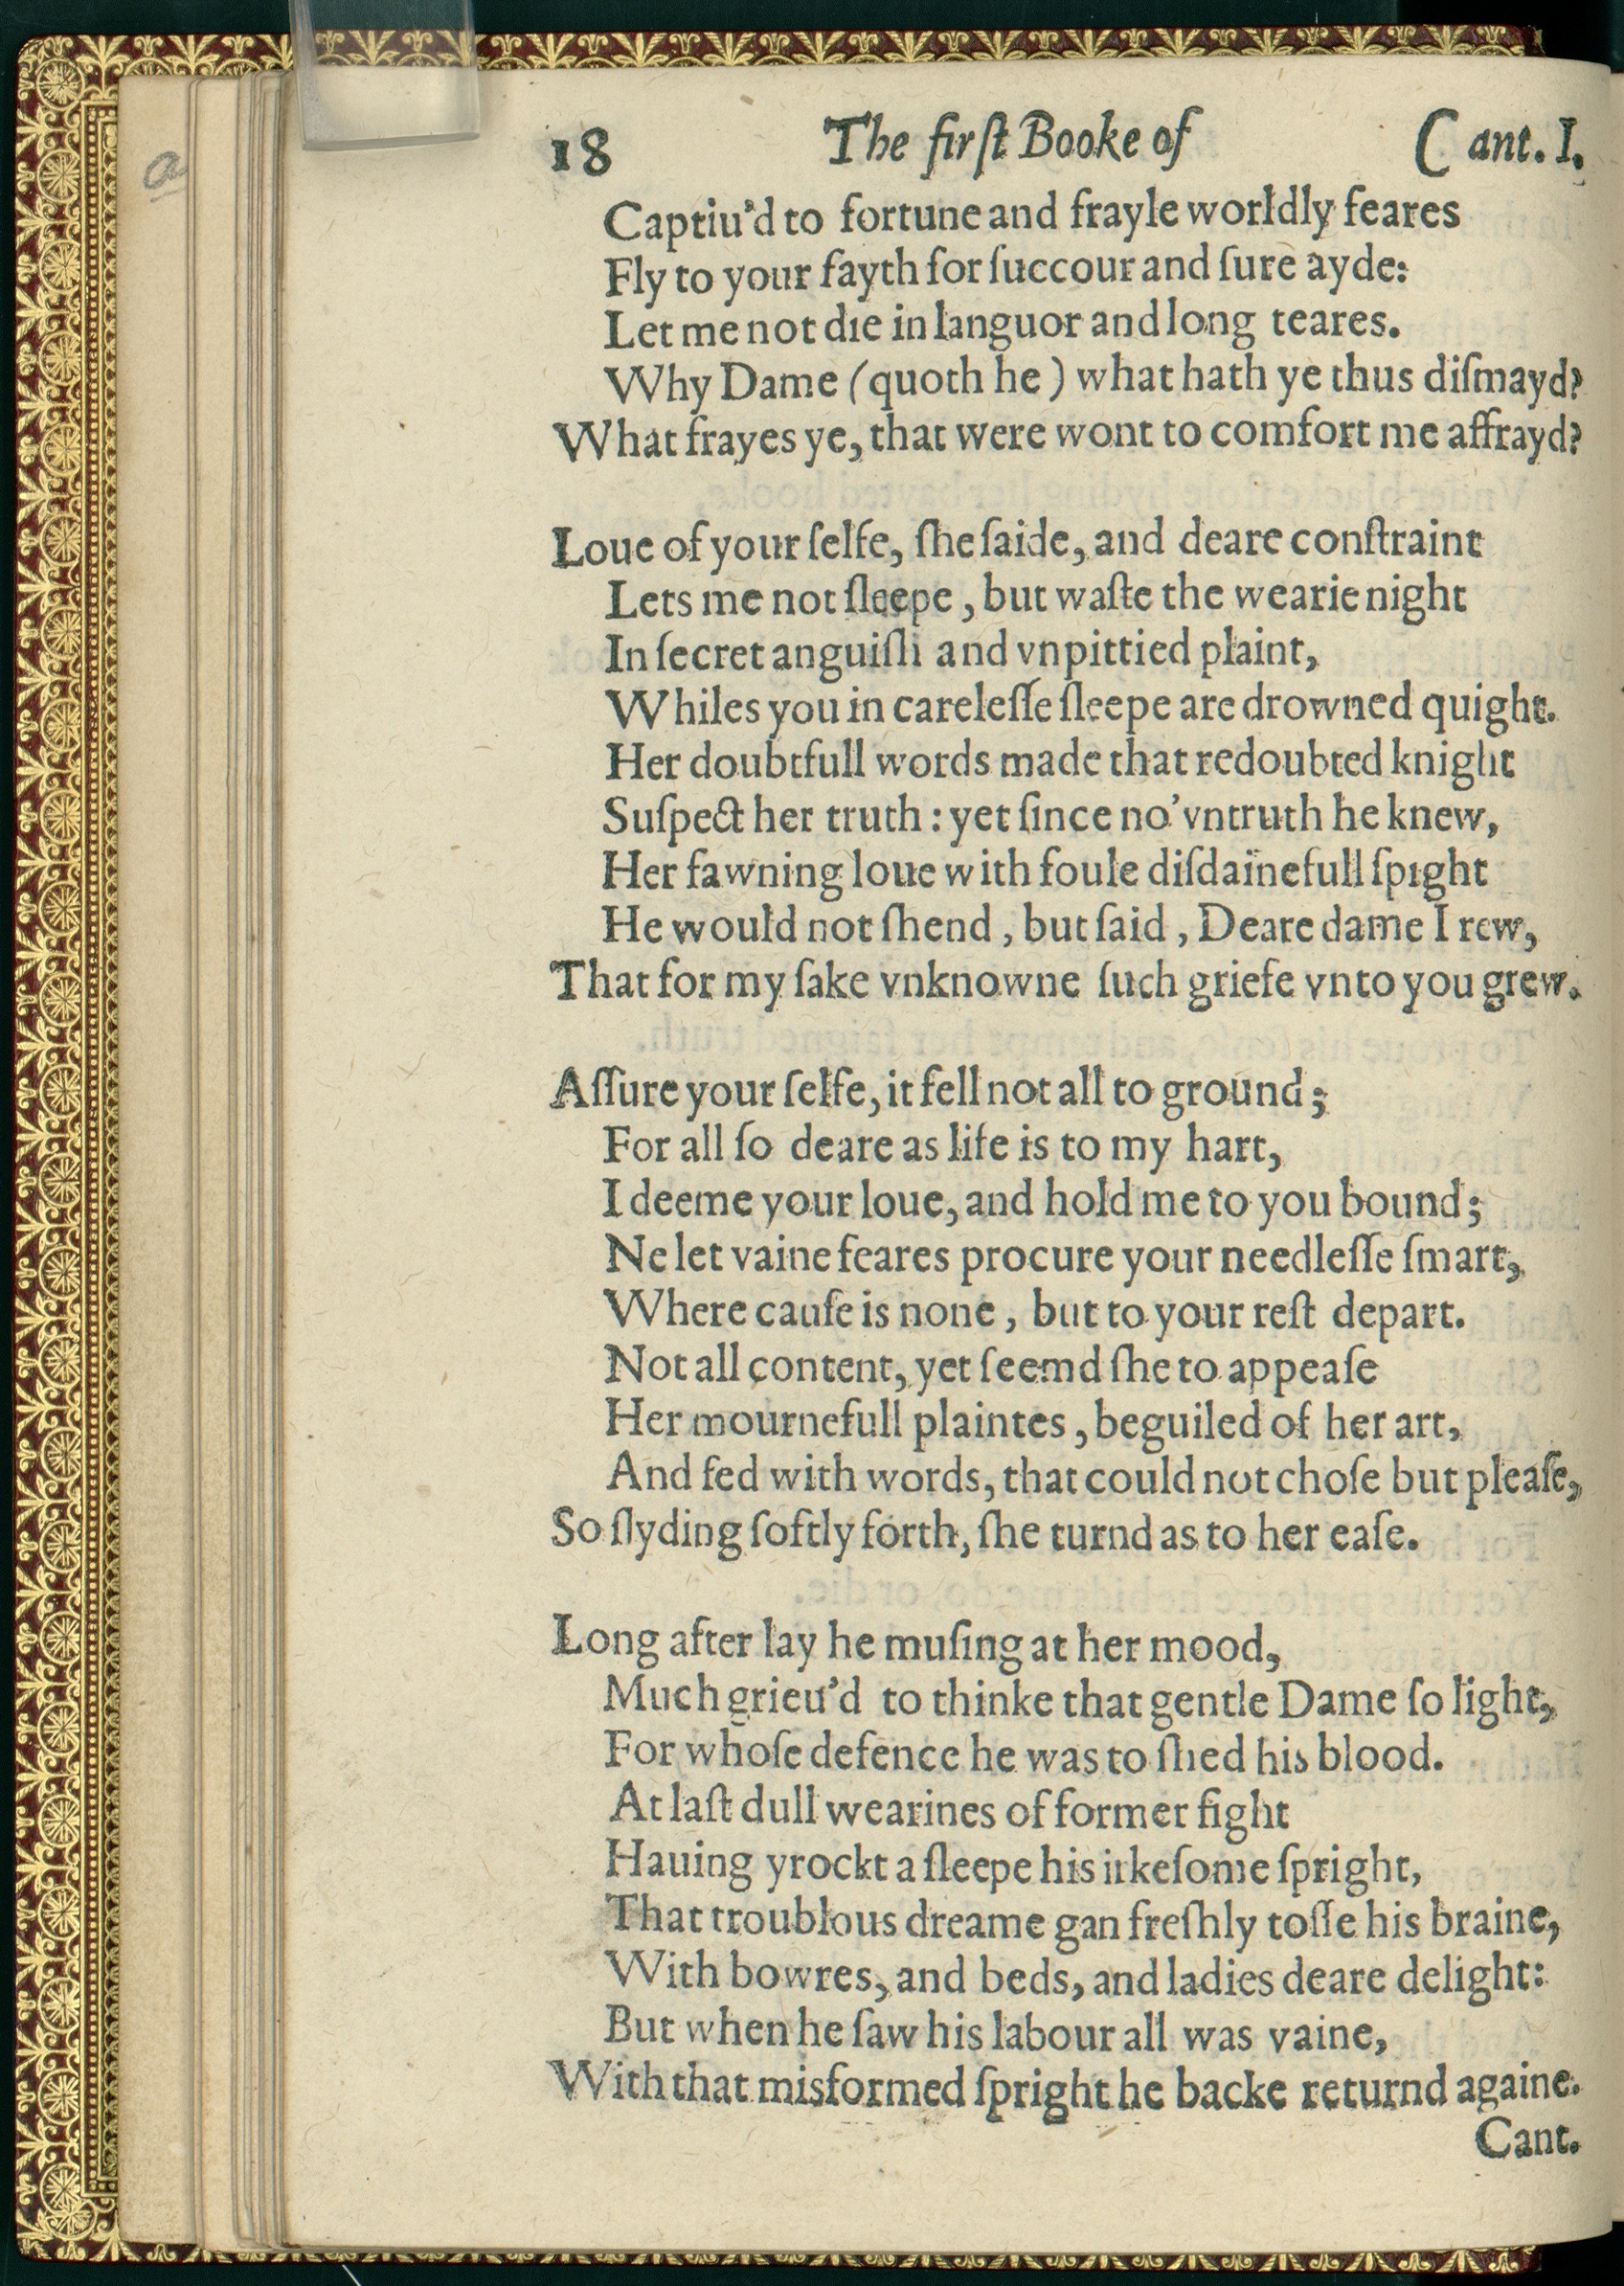 a
18 The firſt Booke of Cant. I.
Captiu'd to fortune and frayle worldly feares
Fly to your fayth for ſuccour and ſure ayde:
Let me not die in languor and long teares.
Why Dame (quoth he) what hath ye thus diſmayd?
What frayes ye, that were wont to comfort me affrayd?
Loue of your ſelfe, ſhe ſaide, and deare conſtraint
Lets me not ſleepe, but waſte the wearie night
In ſecret anguiſh and vnpittied plaint,
Whiles you in careleſſe ſleepe are drowned quight.
Her doubtfull words made that redoubted knight
Suſpect her truth: yet ſince no' vntruth he knew,
Her fawning loue with foule diſdainefull ſpight
He would not ſhend, but ſaid, Deare dame I rew,
That for my ſake vnknowne ſuch griefe vnto you grew.
Aſſure your ſelfe, it fell not all to ground;
For all ſo deare as life is to my hart,
I deeme your loue, and hold me to you bound;
Ne let vaine feares procure your needleſſe ſmart,
Where cauſe is none, but to your reſt depart.
Not all content, yet ſeemd ſhe to appeaſe
Her mournefull plaintes, beguiled of her art,
And fed with words, that could not choſe but pleaſe,
So ſlyding ſoftly forth, ſhe turnd as to her eaſe.
Long after lay he muſing at her mood,
Much grieu'd to thinke that gentle Dame ſo light,
For whoſe defence he was to ſhed his blood.
At laſt dull wearines of former fight
Hauing yrockt a ſleepe his irkeſome ſpright,
That troublous dreame gan freſhly toſſe his braine,
With bowres, and beds, and ladies deare delight:
But when he ſaw his labour all was vaine,
With that misformed ſpright he backe returnd againe.
Cant.